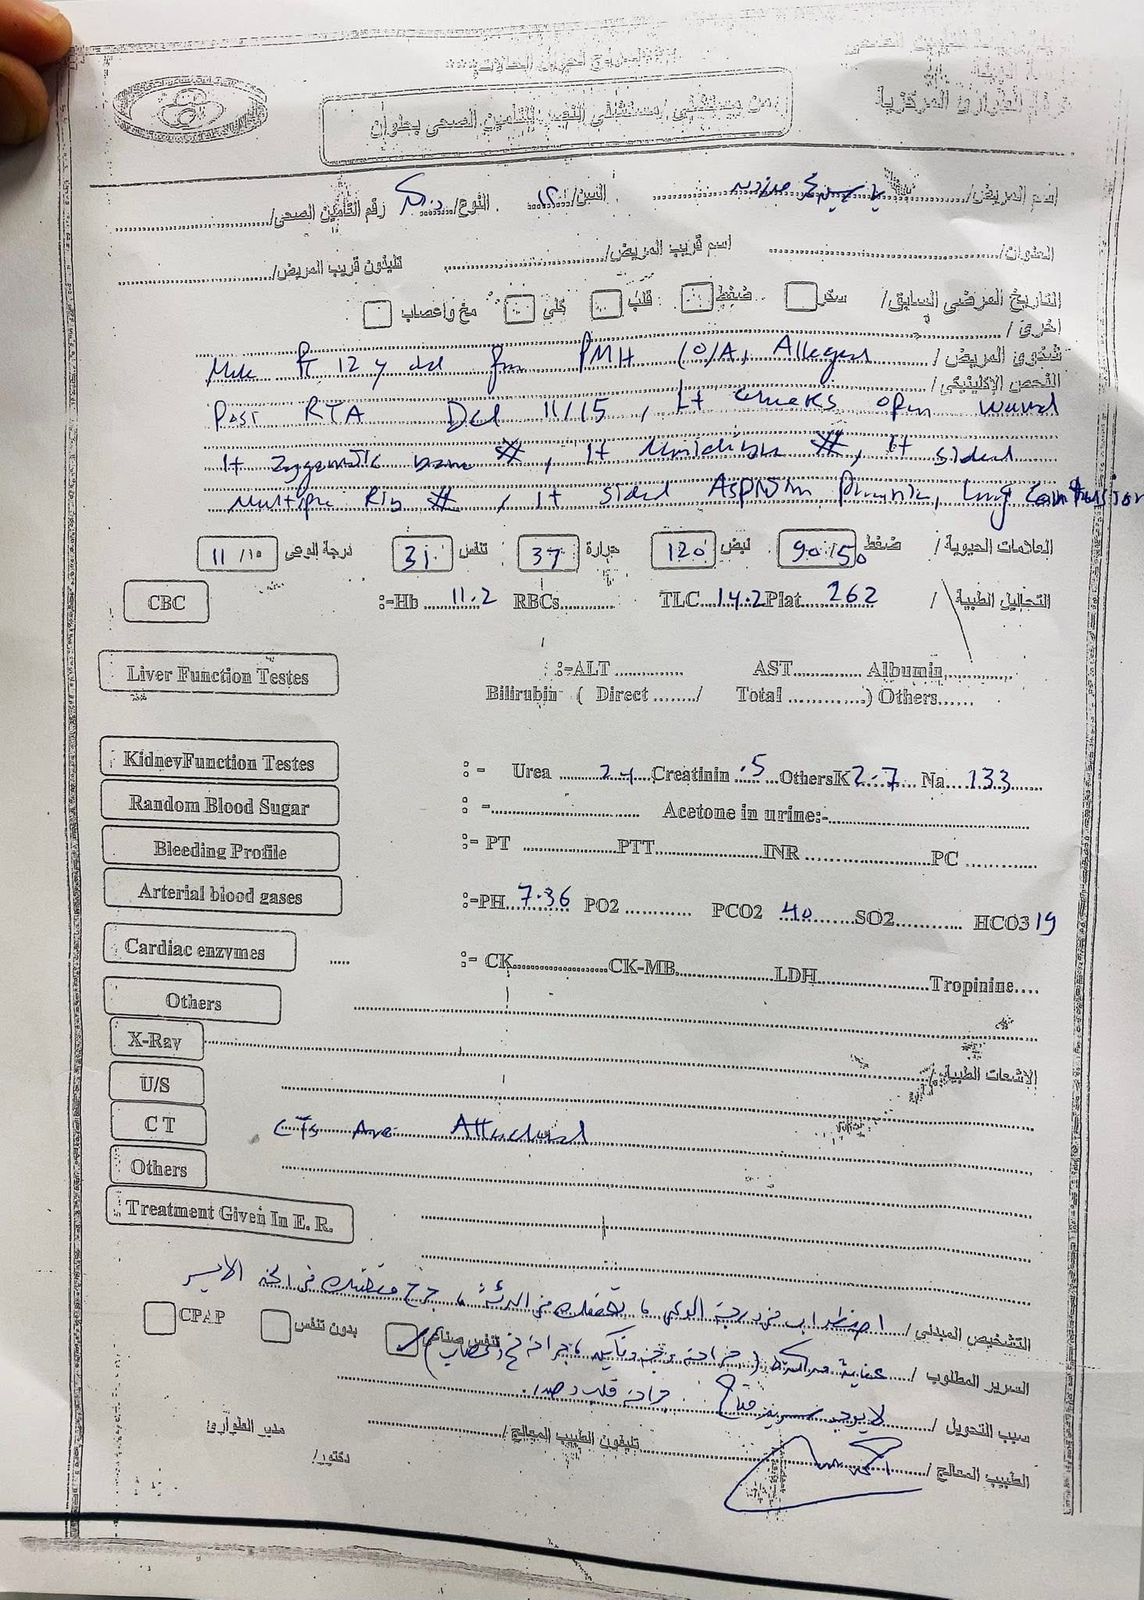 من مستشفى / مستشفى النصر للتأمين الصحى بحلوان
الطوارئ المركزية
اسم المريض/ السن/ ١٢ النوع/ ذكر رقم التأمين الصحى/
العنوان/ اسم قريب المريض/ تليفون قريب المريض/
التاريخ المرضى السابق/ سكر ضغط قلب كلى مخ واعصاب
اخرى /
شكوى المريض / Male Pt 12 y old from PMH (O/A, Alleged
الفحص الإكلينيكى/ Post RTA DCL 11/15, Lt cheeks open wound
lt zygomatic bone #, lt Mandible #, lt sided
Multiple Rib #, lt sided Aspiration Pneumonia, lung contusion
العلامات الحيوية/ ضغط 90/50 نبض 120 حرارة 37 تنفس 31 درجة الوعى 11/15
التحاليل الطبية / CBC :-Hb 11.2 RBCs TLC 14.2 Plat 262
Liver Function Testes :-ALT AST Albumin
Bilirubin ( Direct / Total ) Others
KidneyFunction Testes :- Urea 24 Creatinin .5 Others K 2.7 Na 133
Random Blood Sugar :- Acetone in urine:-
Bleeding Profile :- PT PTT INR PC
Arterial blood gases :-PH 7.36 PO2 PCO2 40 SO2 HCO3 19
Cardiac enzymes :- CK CK-MB LDH Tropinine
Others
X-Ray
الاشعات الطبية /
U/S
C T CTs Are Attached
Others
Treatment Given In E. R.
التشخيص المبدئى / اضطراب فى درجة الوعى ، فى الرئة ، جرح فى الخد الايسر
السرير المطلوب / عناية مركزة (جراحة وجه وفكين، جراحة مخ واعصاب) تنفس صناعى بدون تنفس CPAP
سبب التحويل / لا يوجد سرير متاح جراحة قلب وصدر.
الطبيب المعالج / تليفون الطبيب المعالج/ مدير الطوارئ
دكتور/